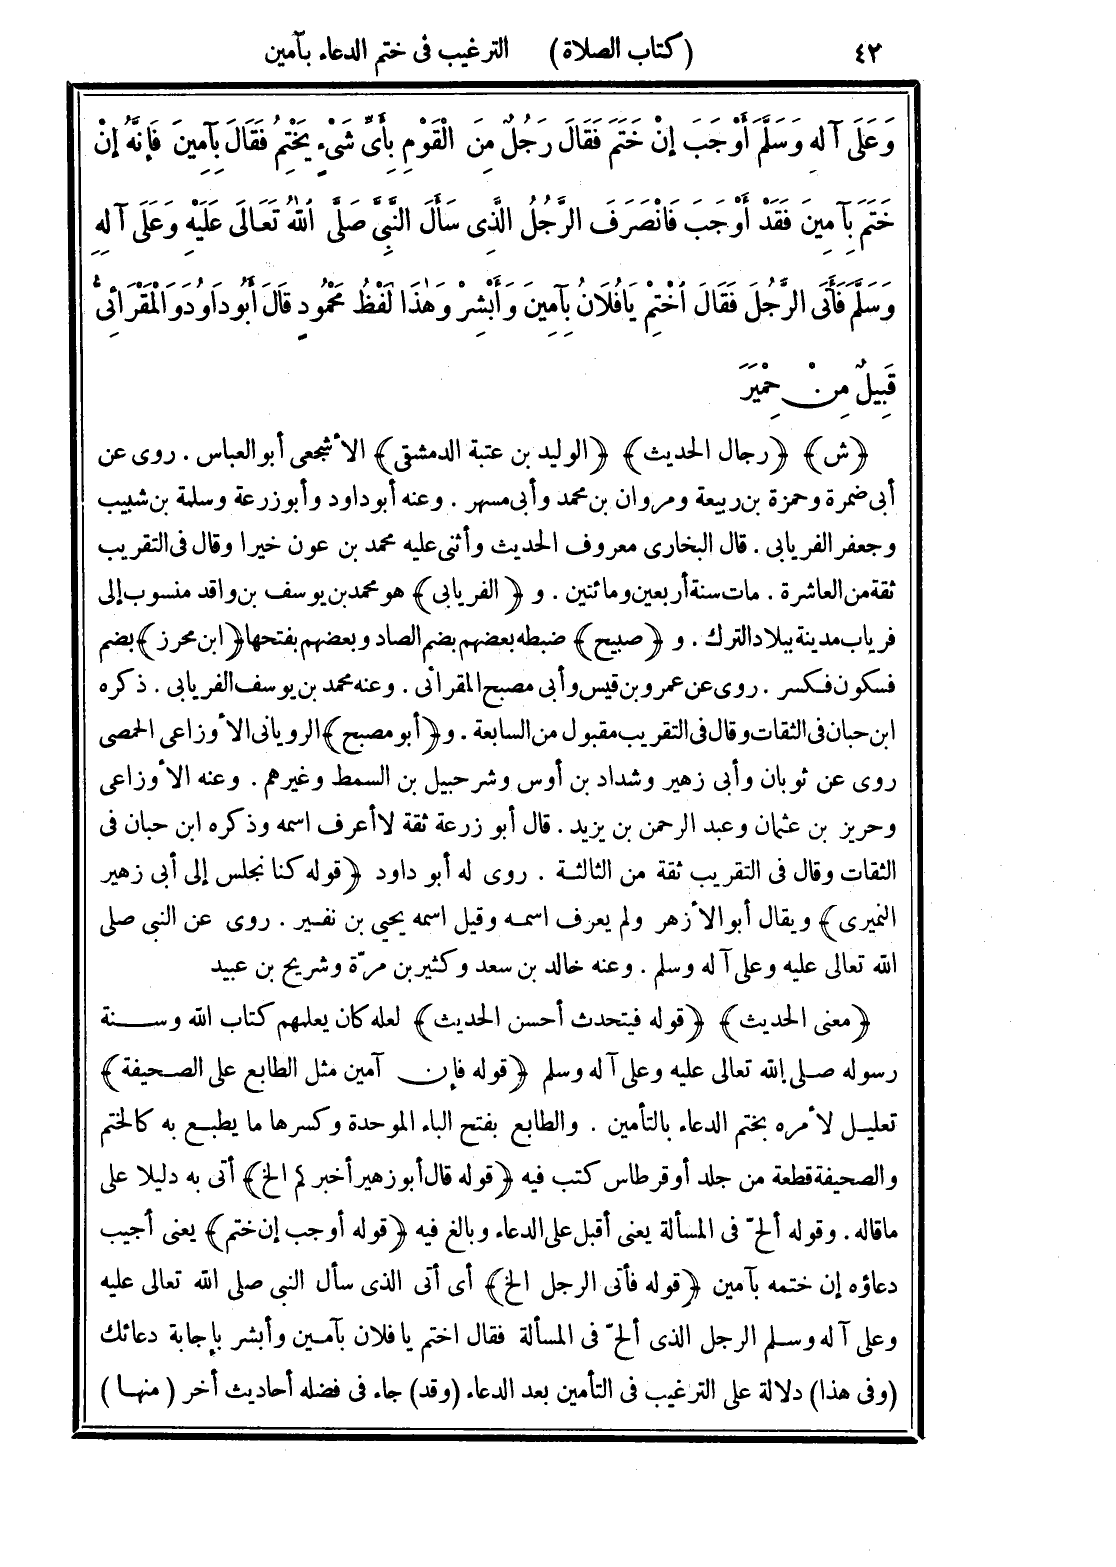 ٤٢ (كتاب الصلاة) الترغيب فى ختم الدعاء بآمين
وَعَلَى آلِهِ وَسَلَّمَ أَوْجَبَ إِنْ خَتَمَ فَقَالَ رَجُلٌ مِنَ الْقَوْمِ بِأَىِّ شَىْءٍ يَخْتِمُ فَقَالَ بِآمِينَ فَإِنَّهُ إِنْ
خَتَمَ بِآمِينَ فَقَدْ أَوْجَبَ فَانْصَرَفَ الرَّجُلُ الَّذِى سَأَلَ النَّبِىَّ صَلَّى اللهُ تَعَالَى عَلَيْهِ وَعَلَى آلِهِ
وَسَلَّمَ فَأَتَى الرَّجُلَ فَقَالَ اخْتِمْ يَا فُلَانُ بِآمِينَ وَأَبْشِرْ وَهٰذَا لَفْظُ مَحْمُودٍ قَالَ أَبُو دَاوُدَ وَالْمَقْرَائِىُّ
قَبِيلٌ مِنْ حِمْيَرَ
﴿ش﴾ ﴿رجال الحديث﴾ ﴿الوليد بن عتبة الدمشقى﴾ الأشجعى أبو العباس . روى عن
أبى ضمرة وحمزة بن ربيعة ومروان بن محمد وأبى مسهر . وعنه أبو داود وأبو زرعة وسلمة بن شبيب
وجعفر الفريابى . قال البخارى معروف الحديث وأثنى عليه محمد بن عون خيرا وقال فى التقريب
ثقة من العاشرة . مات سنة أربعين ومائتين . و ﴿الفريابى﴾ هو محمد بن يوسف بن واقد منسوب إلى
فرياب مدينة ببلاد الترك . و ﴿صبيح﴾ ضبطه بعضهم بضم الصاد وبعضهم بفتحها ﴿ابن محرز﴾ بضم
فسكون فكسر . روى عن عمرو بن قيس وأبى مصبح المقرائى . وعنه محمد بن يوسف الفريابى . ذكره
ابن حبان فى الثقات وقال فى التقريب مقبول من السابعة . و ﴿أبو مصبح﴾ الرويانى الأوزاعى الحمصى
روى عن ثوبان وأبى زهير وشداد بن أوس وشرحبيل بن السمط وغيرهم . وعنه الأوزاعى
وحريز بن عثمان وعبد الرحمن بن يزيد . قال أبو زرعة ثقة لا أعرف اسمه وذكره ابن حبان فى
الثقات وقال فى التقريب ثقة من الثالثة . روى له أبو داود ﴿قوله كنا نجلس إلى أبى زهير
النميرى﴾ ويقال أبو الأزهر ولم يعرف اسمه وقيل اسمه يحيى بن نفير . روى عن النبى صلى
الله تعالى عليه وعلى آله وسلم . وعنه خالد بن سعد وكثير بن مرّة وشريح بن عبيد
﴿معنى الحديث﴾ ﴿قوله فيتحدث أحسن الحديث﴾ لعله كان يعلمهم كتاب الله وسنة
رسوله صلى الله تعالى عليه وعلى آله وسلم ﴿قوله فإن آمين مثل الطابع على الصحيفة﴾
تعليل لأمره بختم الدعاء بالتأمين . والطابع بفتح الباء الموحدة وكسرها ما يطبع به كالختم
والصحيفة قطعة من جلد أو قرطاس كتب فيه ﴿قوله قال أبو زهير أخبركم الخ﴾ أتى به دليلا على
ما قاله . وقوله ألحّ فى المسألة يعنى أقبل على الدعاء وبالغ فيه ﴿قوله أوجب إن ختم﴾ يعنى أجيب
دعاؤه إن ختمه بآمين ﴿قوله فأتى الرجل الخ﴾ أى أتى الذى سأل النبى صلى الله تعالى عليه
وعلى آله وسلم الرجل الذى ألحّ فى المسألة فقال اختم يا فلان بآمين وأبشر بإجابة دعائك
(وفى هذا) دلالة على الترغيب فى التأمين بعد الدعاء (وقد) جاء فى فضله أحاديث أخر (منها)